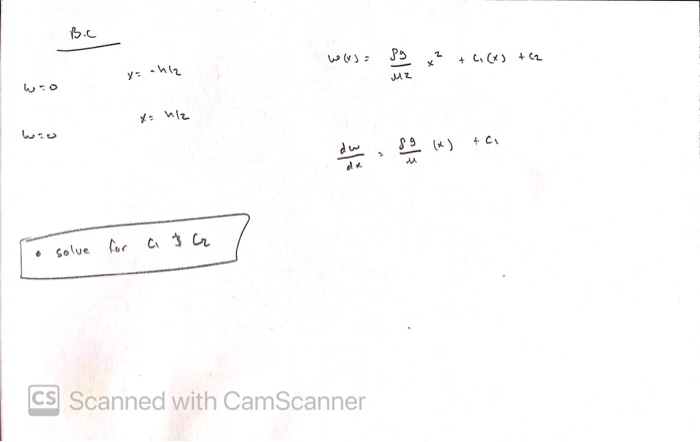 B.C
w=0 x= -h/2
w=0 x= h/2
w(x) = ρg/μ2 x² + C₁(x) + C2
dw/dx = ρg/μ (x) + C₁
• solve for C₁ & C₂
CS Scanned with CamScanner